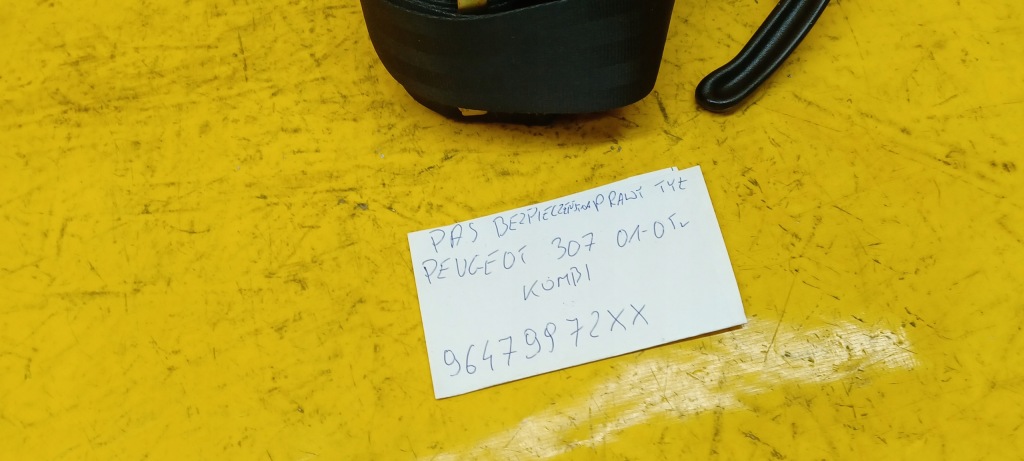 PAS BEZPIECZEŃSTWA PRAWY TYŁ
PEUGEOT 307 01-05r
KOMBI
96479972XX